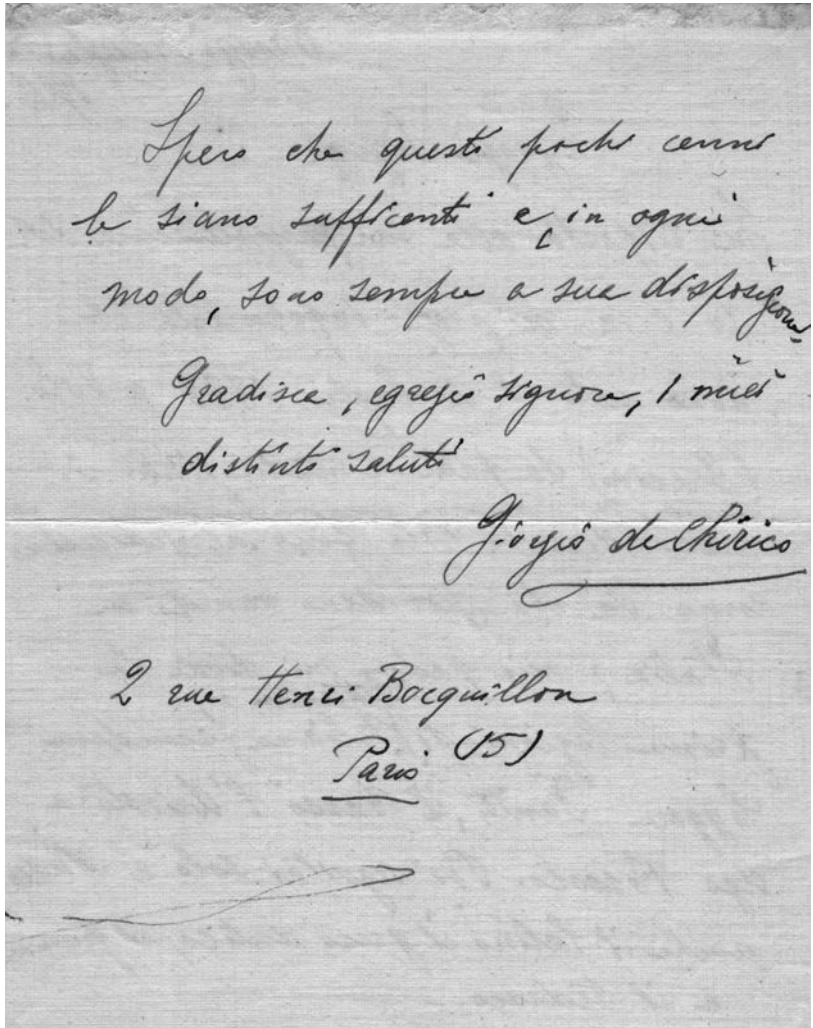 Spero che questi pochi cenni
le siano sufficenti e, in ogni
modo, sono sempre a sua disposizione.
Gradisca, egregio signore, i miei
distinti saluti
Giorgio de Chirico
2 rue Henri Bocquillon
Paris (15)